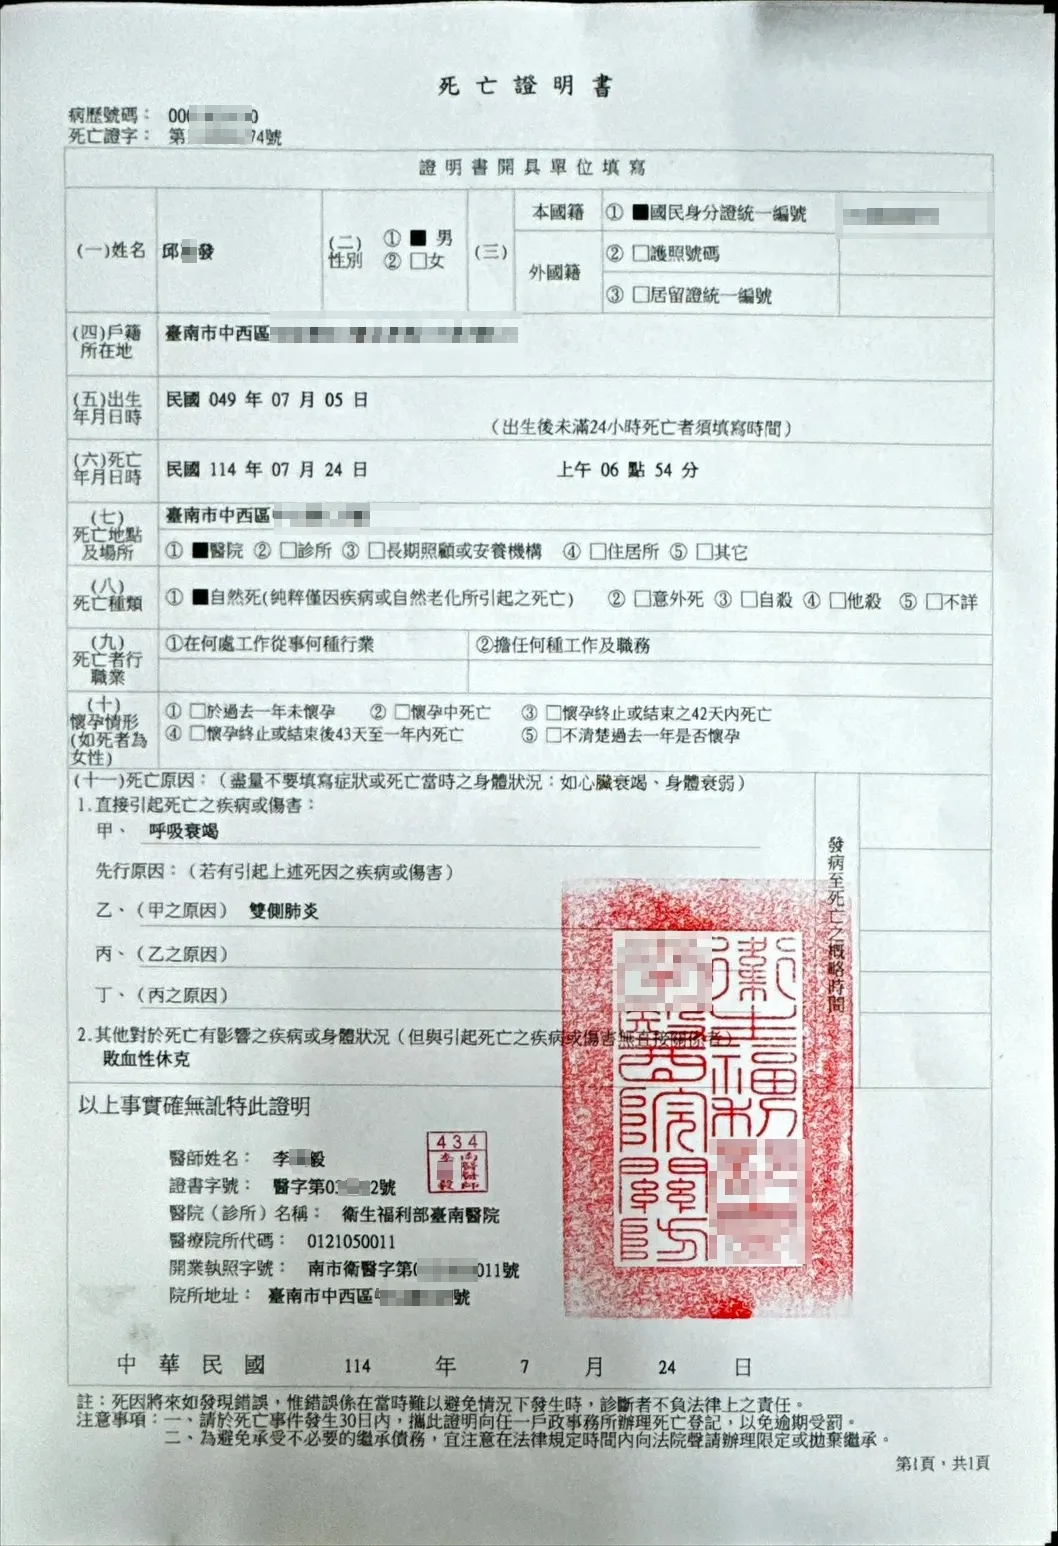 死亡證明書
病歷號碼： 000 0
死亡證字： 第 74號
證明書開具單位填寫
(一)姓名 邱 發
(二)性別 ① ■ 男 ② □女
(三) 本國籍 ① ■國民身分證統一編號
外國籍 ② □護照號碼
③ □居留證統一編號
(四)戶籍所在地 臺南市中西區
(五)出生年月日時 民國 049 年 07 月 05 日
（出生後未滿24小時死亡者須填寫時間）
(六)死亡年月日時 民國 114 年 07 月 24 日 上午 06 點 54 分
(七)死亡地點及場所 臺南市中西區
① ■醫院 ② □診所 ③ □長期照顧或安養機構 ④ □住居所 ⑤ □其它
(八)死亡種類 ① ■自然死(純粹僅因疾病或自然老化所引起之死亡) ② □意外死 ③ □自殺 ④ □他殺 ⑤ □不詳
(九)死亡者行職業 ①在何處工作從事何種行業 ②擔任何種工作及職務
(十)懷孕情形(如死者為女性) ① □於過去一年未懷孕 ② □懷孕中死亡 ③ □懷孕終止或結束之42天內死亡
④ □懷孕終止或結束後43天至一年內死亡 ⑤ □不清楚過去一年是否懷孕
(十一)死亡原因：（盡量不要填寫症狀或死亡當時之身體狀況：如心臟衰竭、身體衰弱）
1.直接引起死亡之疾病或傷害：
甲、 呼吸衰竭
先行原因：（若有引起上述死因之疾病或傷害）
乙、（甲之原因） 雙側肺炎
丙、（乙之原因）
丁、（丙之原因）
發病至死亡之概略時間
2.其他對於死亡有影響之疾病或身體狀況（但與引起死亡之疾病或傷害無直接關係者）
敗血性休克
以上事實確無訛特此證明
醫師姓名： 李 毅
434
證書字號： 醫字第03 2號
醫院（診所）名稱： 衛生福利部臺南醫院
醫療院所代碼： 0121050011
開業執照字號： 南市衛醫字第0 011號
院所地址： 臺南市中西區 號
衛生福利部
醫院關防
中華民國 114 年 7 月 24 日
註：死因將來如發現錯誤，惟錯誤係在當時難以避免情況下發生時，診斷者不負法律上之責任。
注意事項：一、請於死亡事件發生30日內，攜此證明向任一戶政事務所辦理死亡登記，以免逾期受罰。
二、為避免承受不必要的繼承債務，宜注意在法律規定時間內向法院聲請辦理限定或拋棄繼承。
第1頁，共1頁